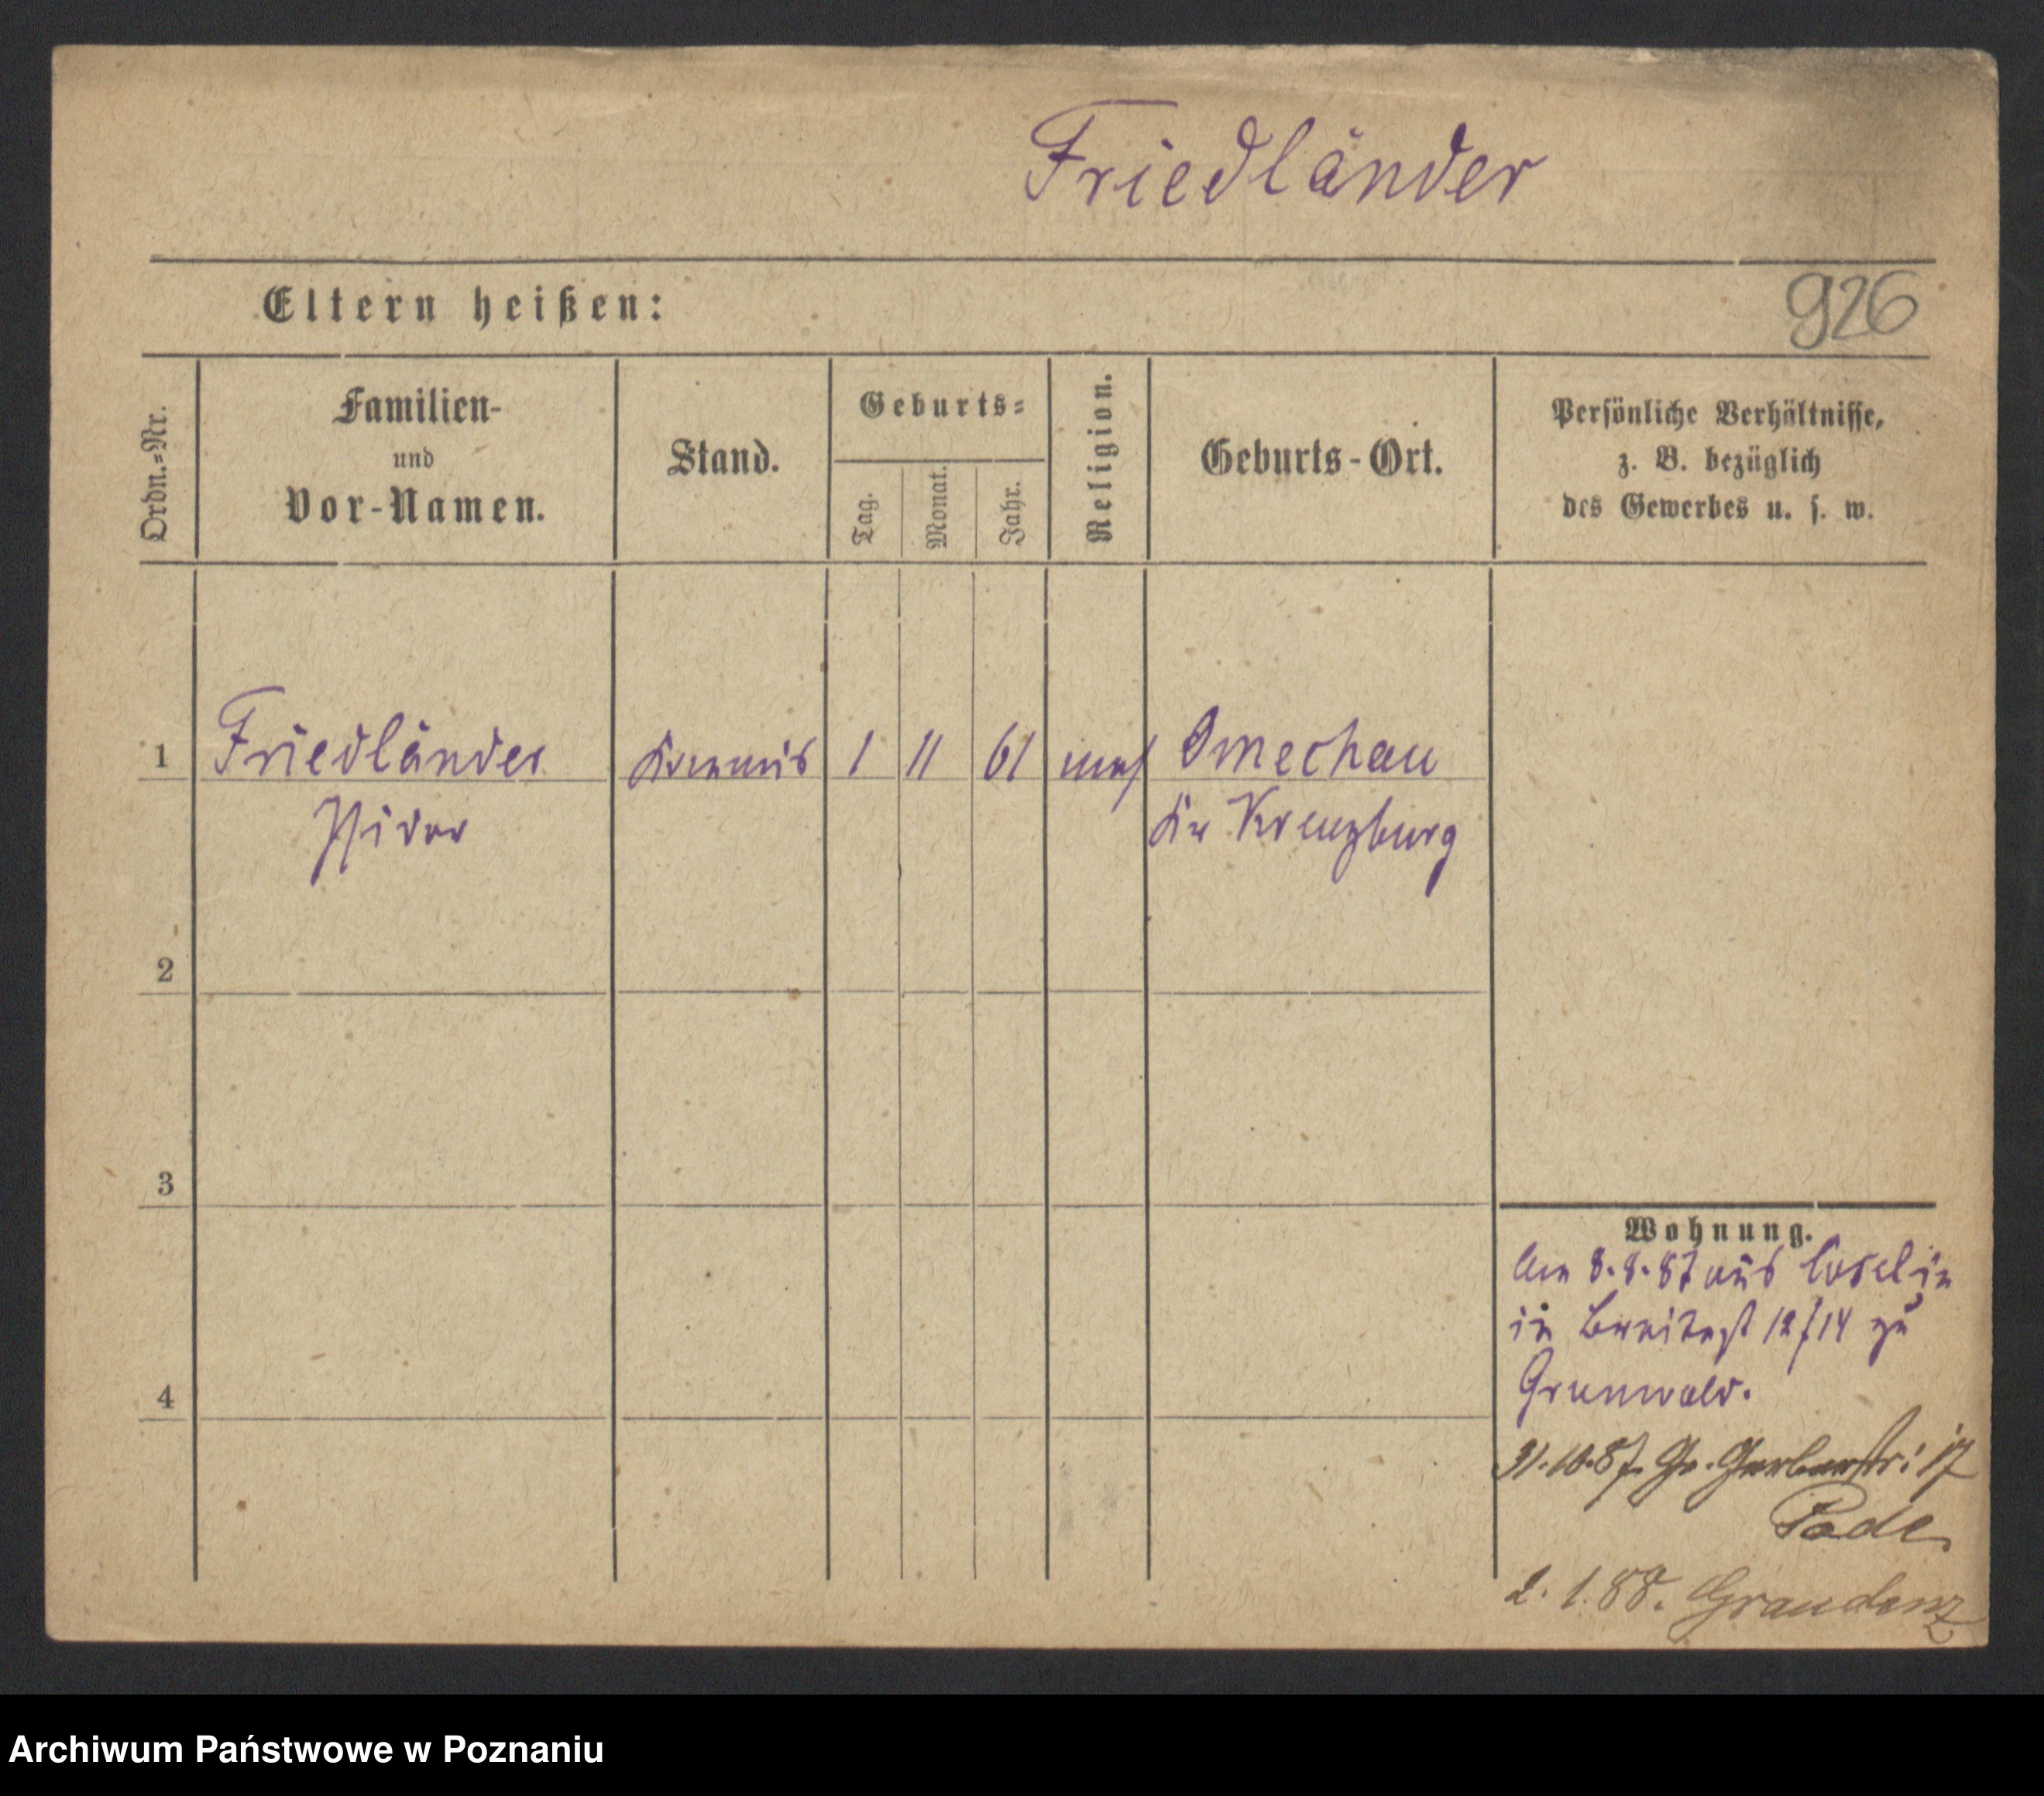 Friedländer
Eltern heißen:
926
Ordn.=Nr.
Familien-
und
Vor-Namen.
Stand.
Geburts=
Tag.
Monat.
Jahr.
Religion.
Geburts-Ort.
Persönliche Verhältnisse,
z. B. bezüglich
des Gewerbes u. s. w.
1 Friedländer Kommis 1 11 61 mos Omechau
Isidor Kr Kreuzburg
2
3
4
Wohnung.
Am 8.8.87 aus Coseln
in Breitest 12/14 zu
Grunwald.
31.10.87. Gr. Gerberstr: 17
Pade
2.1.88. Graudenz
Archiwum Państwowe w Poznaniu